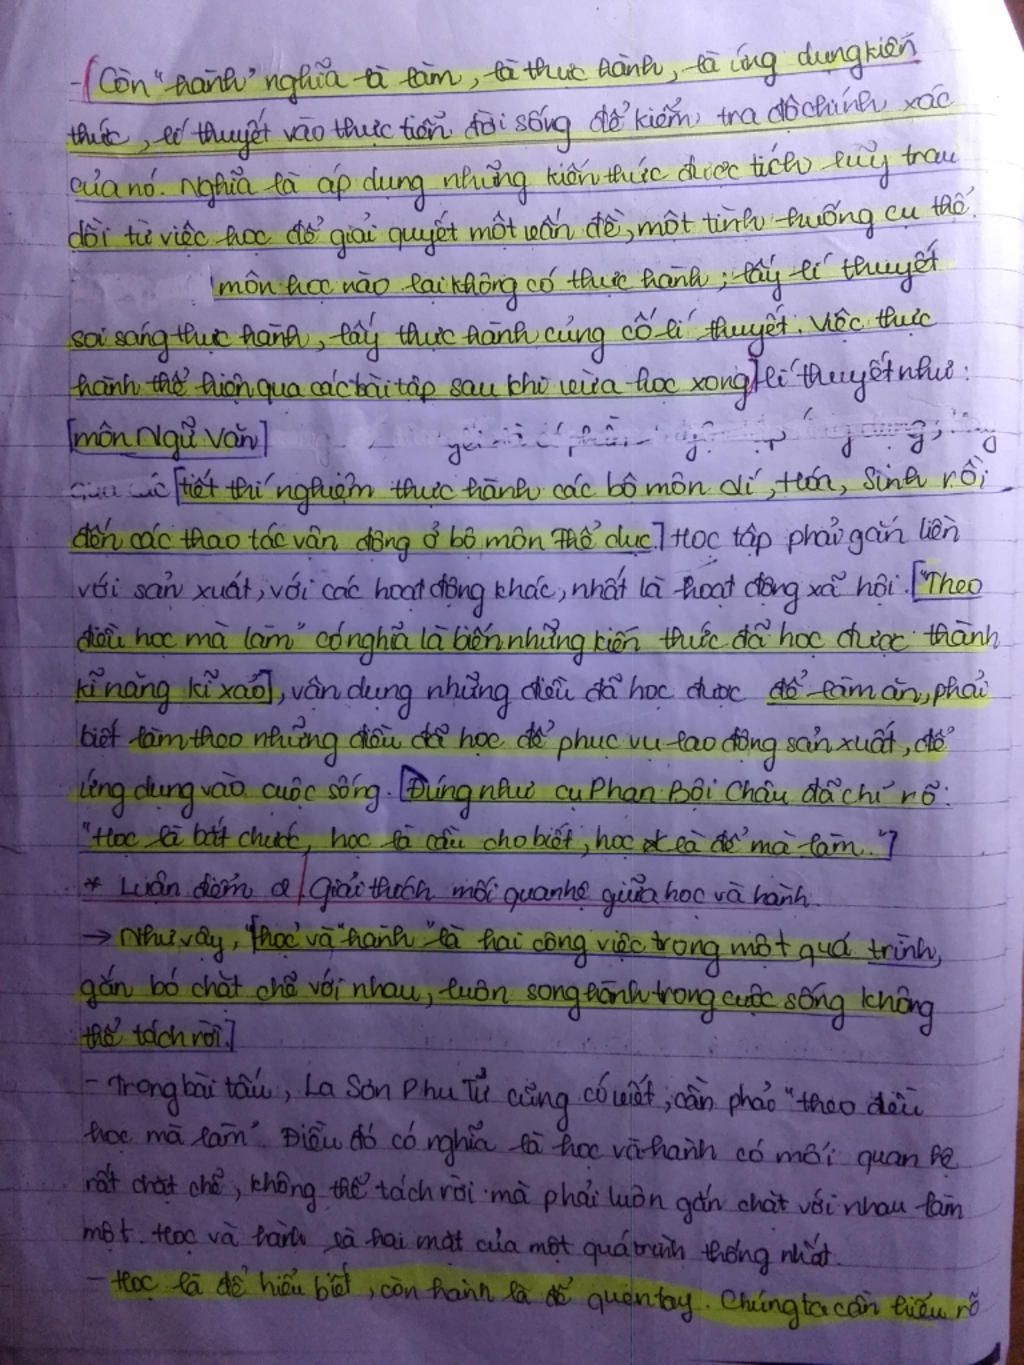 - Còn "hành" nghĩa là làm, là thực hành, là ứng dụng kiến
thức, lí thuyết vào thực tiễn đời sống để kiểm tra độ chính xác
của nó. Nghĩa là áp dụng những kiến thức được tích lũy trau
dồi từ việc học để giải quyết một vấn đề, một tình huống cụ thể.
môn học nào lại không có thực hành; lấy lí thuyết
soi sáng thực hành, lấy thực hành củng cố lí thuyết. Việc thực
hành thể hiện qua các bài tập sau khi vừa học xong] lí thuyết như:
[môn Ngữ Văn]
[tiết thí nghiệm thực hành các bộ môn Lí, Hóa, Sinh rồi
đến các thao tác vận động ở bộ môn Thể dục.] Học tập phải gắn liền
với sản xuất, với các hoạt động khác, nhất là hoạt động xã hội. ["Theo
điều học mà làm" có nghĩa là biến những kiến thức đã học được thành
kĩ năng kĩ xảo], vận dụng những điều đã học được để làm ăn, phải
biết làm theo những điều đã học để phục vụ lao động sản xuất, để
ứng dụng vào cuộc sống. [Đúng như cụ Phan Bội Châu đã chỉ rõ:
"Học là bắt chước, học là cầu cho biết, học là để mà làm."]
* Luận điểm 2/ Giải thích mối quan hệ giữa học và hành.
→ Như vậy, ["học" và "hành" là hai công việc trong một quá trình,
gắn bó chặt chẽ với nhau, luôn song hành trong cuộc sống không
thể tách rời.]
- Trong bài tấu, La Sơn Phu Tử cũng có viết, cần phải "theo điều
học mà làm". Điều đó có nghĩa là học và hành có mối quan hệ
rất chặt chẽ, không thể tách rời mà phải luôn gắn chặt với nhau làm
một. Học và hành là hai mặt của một quá trình thống nhất.
- Học là để hiểu biết, còn hành là để quen tay. Chúng ta cần hiểu rõ